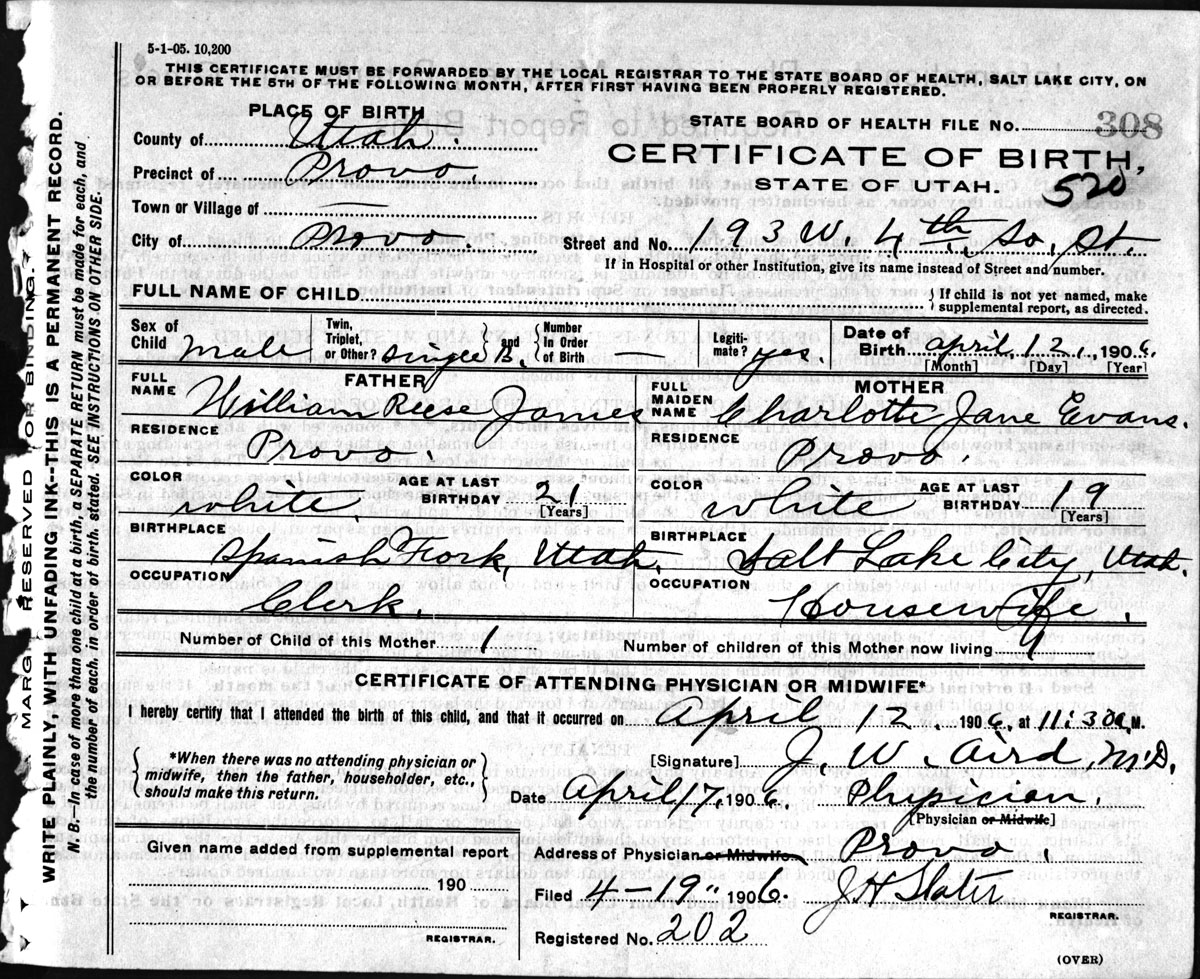 5-1-05. 10,200
THIS CERTIFICATE MUST BE FORWARDED BY THE LOCAL REGISTRAR TO THE STATE BOARD OF HEALTH, SALT LAKE CITY, ON
OR BEFORE THE 5TH OF THE FOLLOWING MONTH, AFTER FIRST HAVING BEEN PROPERLY REGISTERED.
PLACE OF BIRTH
County of Utah.
Precinct of Provo.
Town or Village of —
City of Provo.
STATE BOARD OF HEALTH FILE No. 308
CERTIFICATE OF BIRTH,
STATE OF UTAH. 520
Street and No. 193 W. 4th So. St.
If in Hospital or other Institution, give its name instead of Street and number.
FULL NAME OF CHILD
If child is not yet named, make
supplemental report, as directed.
Sex of Child Male
Twin, Triplet, or Other? Single B and Number In Order of Birth —
Legiti-mate? yes.
Date of Birth April, 12, 1906.
[Month] [Day] [Year]
FATHER
FULL NAME William Reese James
RESIDENCE Provo.
COLOR White.
AGE AT LAST BIRTHDAY 21
[Years]
BIRTHPLACE Spanish Fork, Utah.
OCCUPATION Clerk.
MOTHER
FULL MAIDEN NAME Charlotte Jane Evans.
RESIDENCE Provo.
COLOR White
AGE AT LAST BIRTHDAY 19
[Years]
BIRTHPLACE Salt Lake City, Utah.
OCCUPATION Housewife.
Number of Child of this Mother 1
Number of children of this Mother now living
CERTIFICATE OF ATTENDING PHYSICIAN OR MIDWIFE*
I hereby certify that I attended the birth of this child, and that it occurred on April 12 1906, at 11:30 a. M.
*When there was no attending physician or
midwife, then the father, householder, etc.,
should make this return.
[Signature] J. W. Aird, M.D.
Date April 17, 1906. Physician.
[Physician or Midwife]
Given name added from supplemental report
190
REGISTRAR.
Address of Physician or Midwife Provo.
Filed 4-19" 1906. J H Slater
REGISTRAR.
Registered No. 202
(OVER)
MARGIN RESERVED FOR BINDING.
WRITE PLAINLY, WITH UNFADING INK--THIS IS A PERMANENT RECORD.
N. B.—In case of more than one child at a birth, a SEPARATE RETURN must be made for each, and
the number of each, in order of birth, stated. SEE INSTRUCTIONS ON OTHER SIDE.